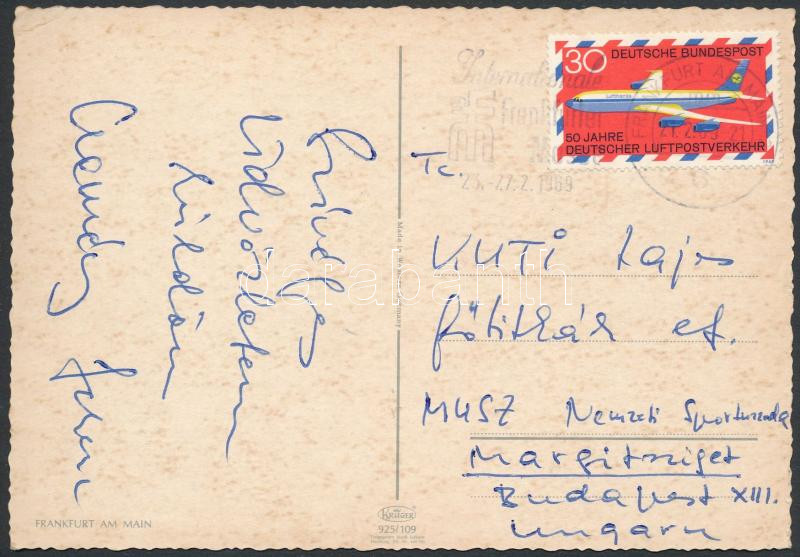 30 DEUTSCHE BUNDESPOST
Lufthansa
50 JAHRE
DEUTSCHER LUFTPOSTVERKEHR
1969
Internationale
Frankfurter
Messe
23.-27.2.1969
FRANKFURT AM MAIN
21.2.69-21
Üdvözletem
küldöm
Tc.
KUTI Lajos
főtitkár et.
MUSZ Nemzeti Sportuszoda
Margitsziget
Budapest XIII.
Ungarn
Made in Western Germany
darabanth
FRANKFURT AM MAIN
KRÜGER
925/109